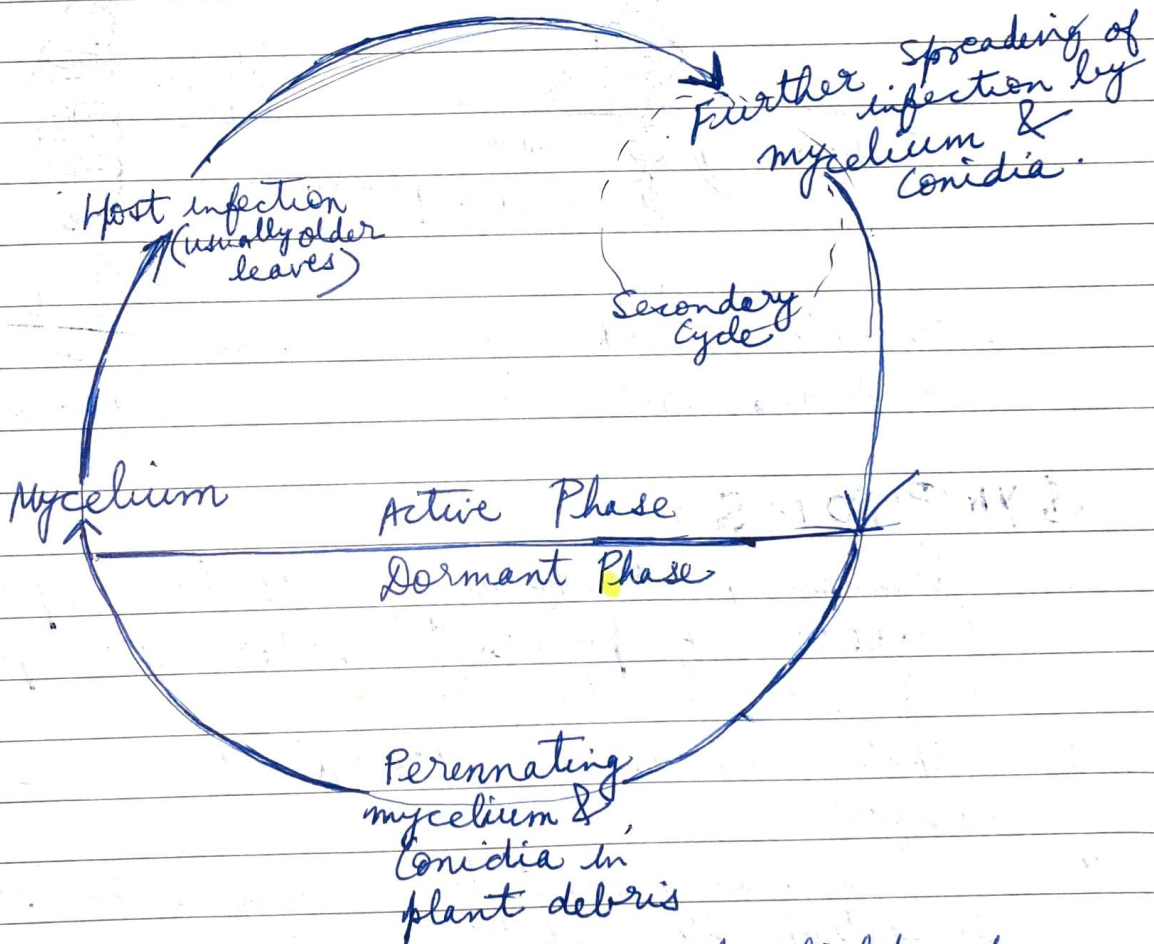 Further spreading of
infection by
mycelium &
conidia.
Host infection
(usually older
leaves)
Secondary
Cycle
Mycelium
Active Phase
Dormant Phase
Perennating
mycelium &
Conidia in
plant debris